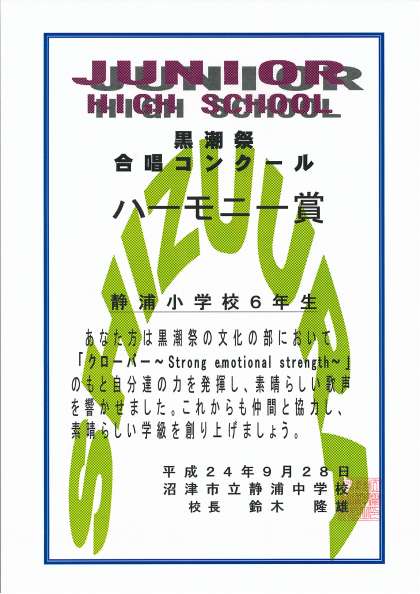 JUNIOR
HIGH SCHOOL
黒潮祭
合唱コンクール
ハーモニー賞
SHIZUURA
静浦小学校6年生
あなた方は黒潮祭の文化の部において
「クローバー～Strong emotional strength～」
のもと自分達の力を発揮し、素晴らしい歌声
を響かせました。これからも仲間と協力し、
素晴らしい学級を創り上げましょう。
平成24年9月28日
沼津市立静浦中学校
校長 鈴木 隆雄